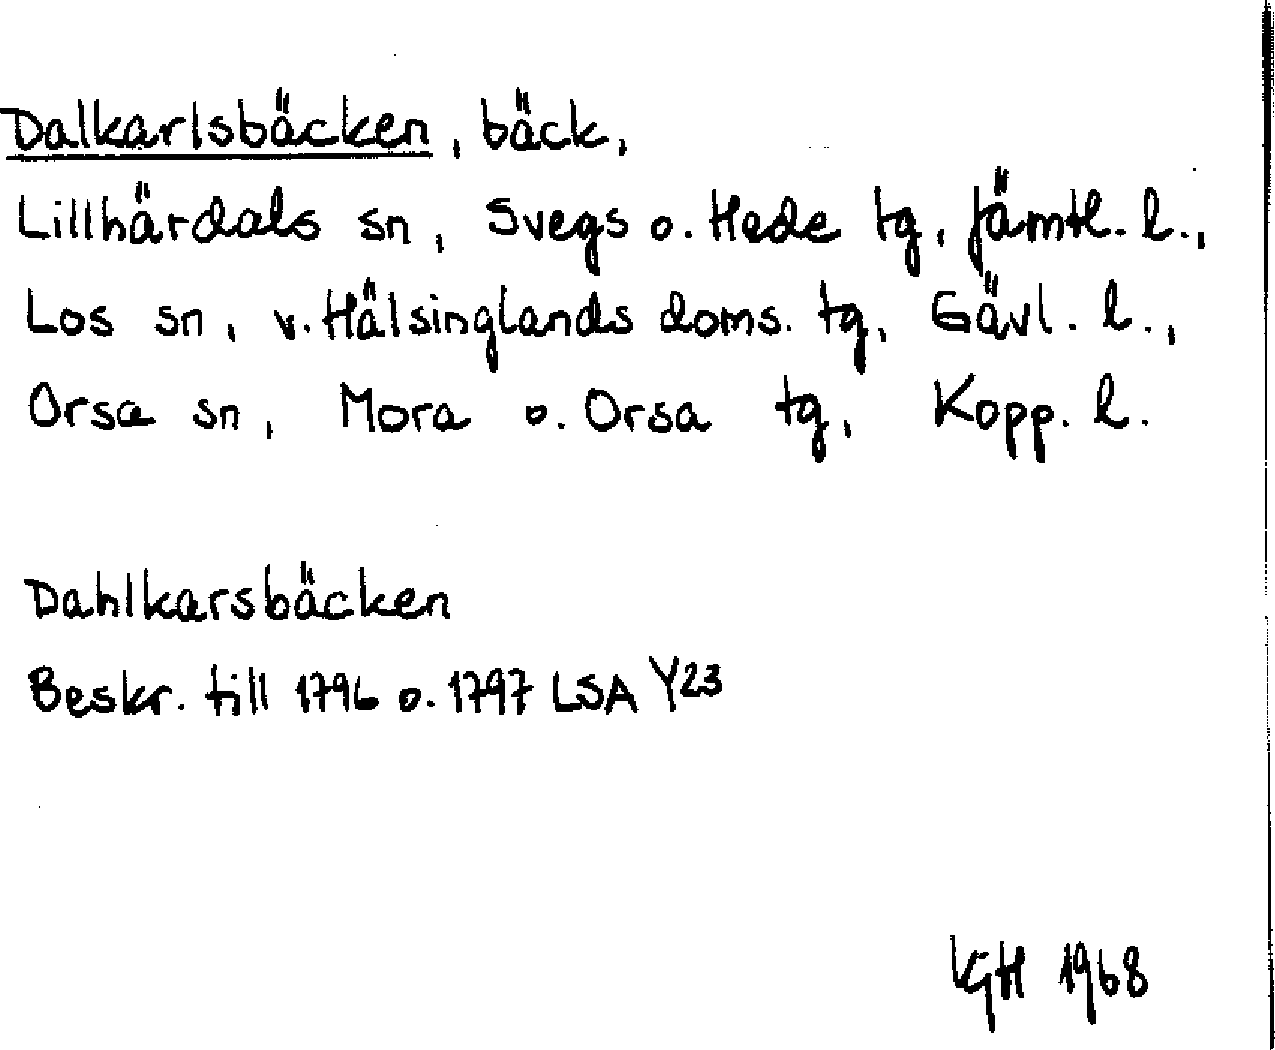 Dalkarlsbäcken, bäck,
Lillhärdals sn, Svegs o. Hede tg, Jämtl. l.,
Los sn, v. Hälsinglands doms. tg, Gävl. l.,
Orsa sn, Mora o. Orsa tg, Kopp. l.
Dahlkarsbäcken
Beskr. till 1796 o. 1797 LSA Y23
LGH 1968